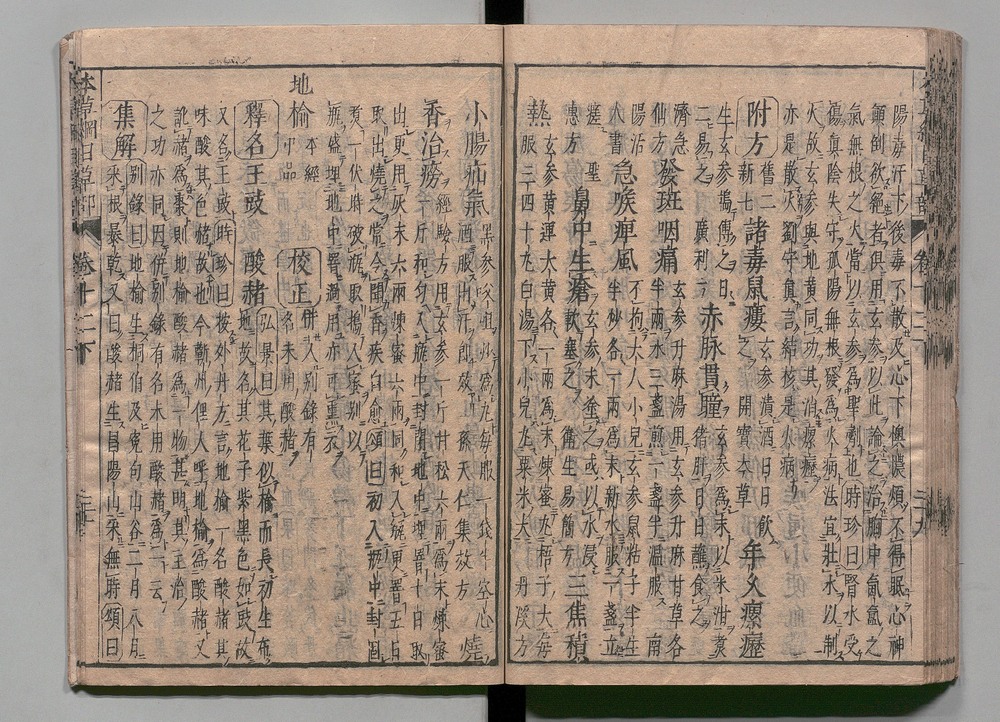 陽毒汗下後毒不散及心下懊憹煩不得眠心神
顛倒欲絕者俱用玄參以此論之治胸中氤氳之
氣無根之火當以玄參爲聖劑也時珍曰腎水受
傷真陰失守孤陽無根發爲火病法宜壯水以制
火故玄參與地黃同功其消瘰癧
亦是散火劉守真言結核是火病
附方 舊二 新七 諸毒鼠瘻 玄參漬酒日日飲之 開寶本草 年久瘰癧
生玄參搗傅之日二易之 廣利方 赤脉貫瞳 玄參爲末以米泔煮猪肝日日蘸食之
濟急仙方 發斑咽痛 玄參升麻湯用玄參升麻甘草各半兩水三盞煎一盞半溫服 南陽活
人書 急喉痺風 不拘大人小兒玄參鼠粘子半生半炒各一兩爲末新水服一盞立
瘥 聖惠方 鼻中生瘡 玄參末塗之或以水浸軟塞之 衛生易簡方 三焦積
熱 玄參黃連大黃各一兩爲末煉蜜丸梧子大每服三四十丸白湯下小兒丸粟米大 丹溪方
小腸疝氣 黑參㕮咀炒爲丸每服一錢半空心酒服出汗即效 孫天仁集效方 燒
香治癆 經驗方用玄參一斤甘松六兩爲末煉蜜一斤和勻入瓶中封閉地中埋窨十日取
出更用灰末六兩煉蜜六兩同和入瓶更窨五日
取出燒之常令聞香疾自愈頌曰初入瓶中封固
煮一伏時破瓶取搗入蜜別以
瓶盛埋地中窨過用亦熏衣
地榆 本經中品 校正 併入別錄有名未用酸赭
釋名 玉豉 酸赭 弘景曰其葉似榆而長初生布地故名其花子紫黑色如豉故
又名玉豉時珍曰按外丹方言地榆一名酸赭其
味酸其色赭故也今蘄州俚人呼地榆爲酸赭又
訛赭爲棗則地榆酸赭爲一物甚明其主治
之功亦同因併別錄有名未用酸赭爲一云
集解 別錄曰地榆生桐柏及冤句山谷二月八月采根暴乾又曰酸赭生昌陽山采無時頌曰
卷十二下